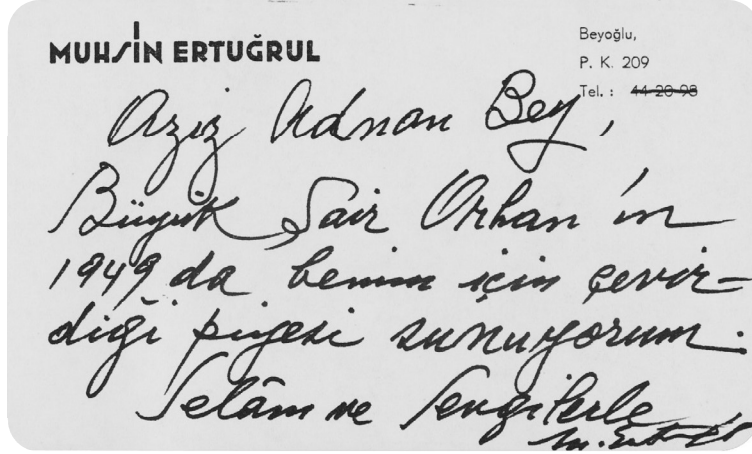 MUHSİN ERTUĞRUL
Beyoğlu,
P. K. 209
Tel. : 44-20-98
Aziz Adnan Bey,
Büyük Şair Orhan'ın
1949 da benim için çevir=
diği piyesi sunuyorum.
Selâm ve Sevgilerle
M. Ertuğrul